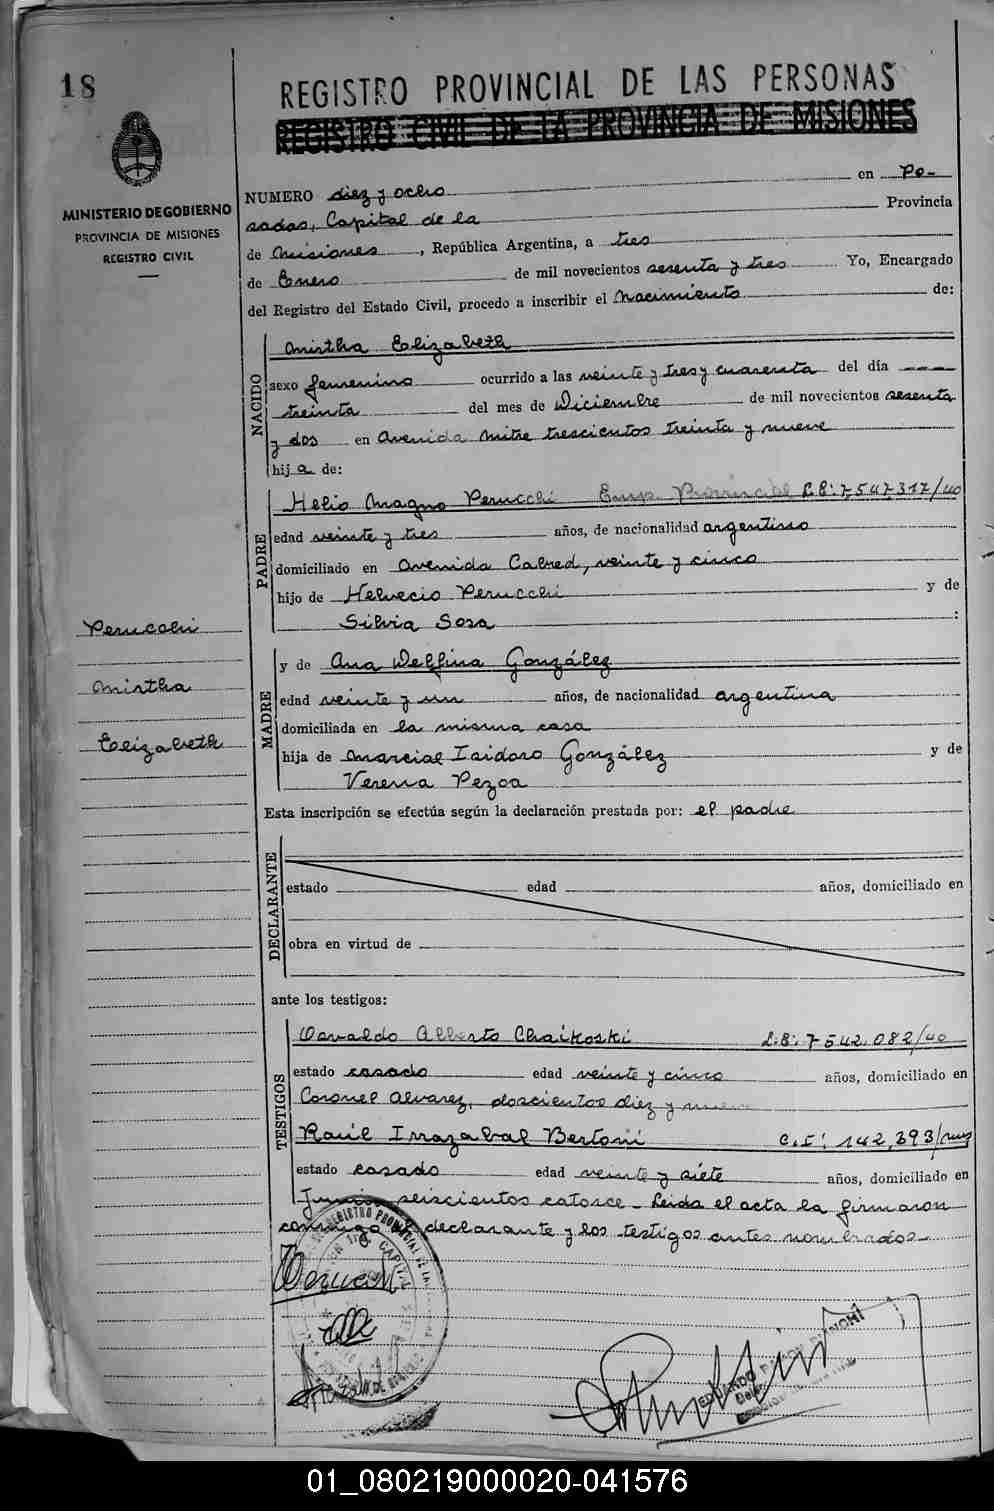 18
REGISTRO PROVINCIAL DE LAS PERSONAS
REGISTRO CIVIL DE LA PROVINCIA DE MISIONES
MINISTERIO DE GOBIERNO
PROVINCIA DE MISIONES
REGISTRO CIVIL
NUMERO diez y ocho en Po-
sadas, Capital de la Provincia
de Misiones, República Argentina, a tres
de Enero de mil novecientos sesenta y tres Yo, Encargado
del Registro del Estado Civil, procedo a inscribir el Nacimiento de:
NACIDO
Mirtha Elizabeth
sexo femenino ocurrido a las veinte y tres y cuarenta del día ----
treinta del mes de Diciembre de mil novecientos sesenta
y dos en Avenida Mitre trescientos treinta y nueve
hija de:
PADRE
Helio Magno Perucchi Emp. Provincial L.E: 7.547.317/40
edad veinte y tres años, de nacionalidad argentino
domiciliado en Avenida Cabred, veinte y cinco
hijo de Helvecio Perucchi y de
Silvia Sosa :
Perucchi
Mirtha
Elizabeth
MADRE
y de Ana Delfina González
edad veinte y un años, de nacionalidad argentina
domiciliada en la misma casa
hija de Marcial Isidoro González y de
Verena Pezoa
Esta inscripción se efectúa según la declaración prestada por: el padre
DECLARANTE
estado edad años, domiciliado en
obra en virtud de
ante los testigos:
TESTIGOS
Osvaldo Alberto Chaikoski L.E: 7.542.082/40
estado casado edad veinte y cinco años, domiciliado en
Coronel Alvarez, doscientos diez y nueve
Raúl Irrazabal Bertoni C.I: 142,393/
estado casado edad veinte y siete años, domiciliado en
Junin seiscientos catorce - Leida el acta la firmaron
conmigo el declarante y los testigos antes nombrados -
01_080219000020-041576